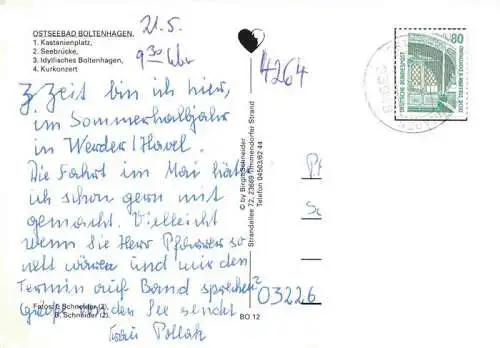 OSTSEEBAD BOLTENHAGEN,
1. Kastanienplatz,
2. Seebrücke,
3. Idyllisches Boltenhagen,
4. Kurkonzert
21.5.
9 30 Uhr
Z. Zeit bin ich hier,
im Sommerhalbjahr
in Werder/Havel.
Die Fahrt im Mai hätte
ich schon gern mit
gemacht. Vielleicht
wenn Sie Herr Pfarrer so
nett wären und mir den
Termin auf Band sprechen?
Fotos: I. Schneider (2),
B. Schneider (2),
Grüße von der See sendet
Frau Pollak
BO 12
© by Birgit Schneider
Strandallee 72, 23669 Timmendorfer Strand
Telefon 04503/62 44
4264
80
DEUTSCHE BUNDESPOST
03226